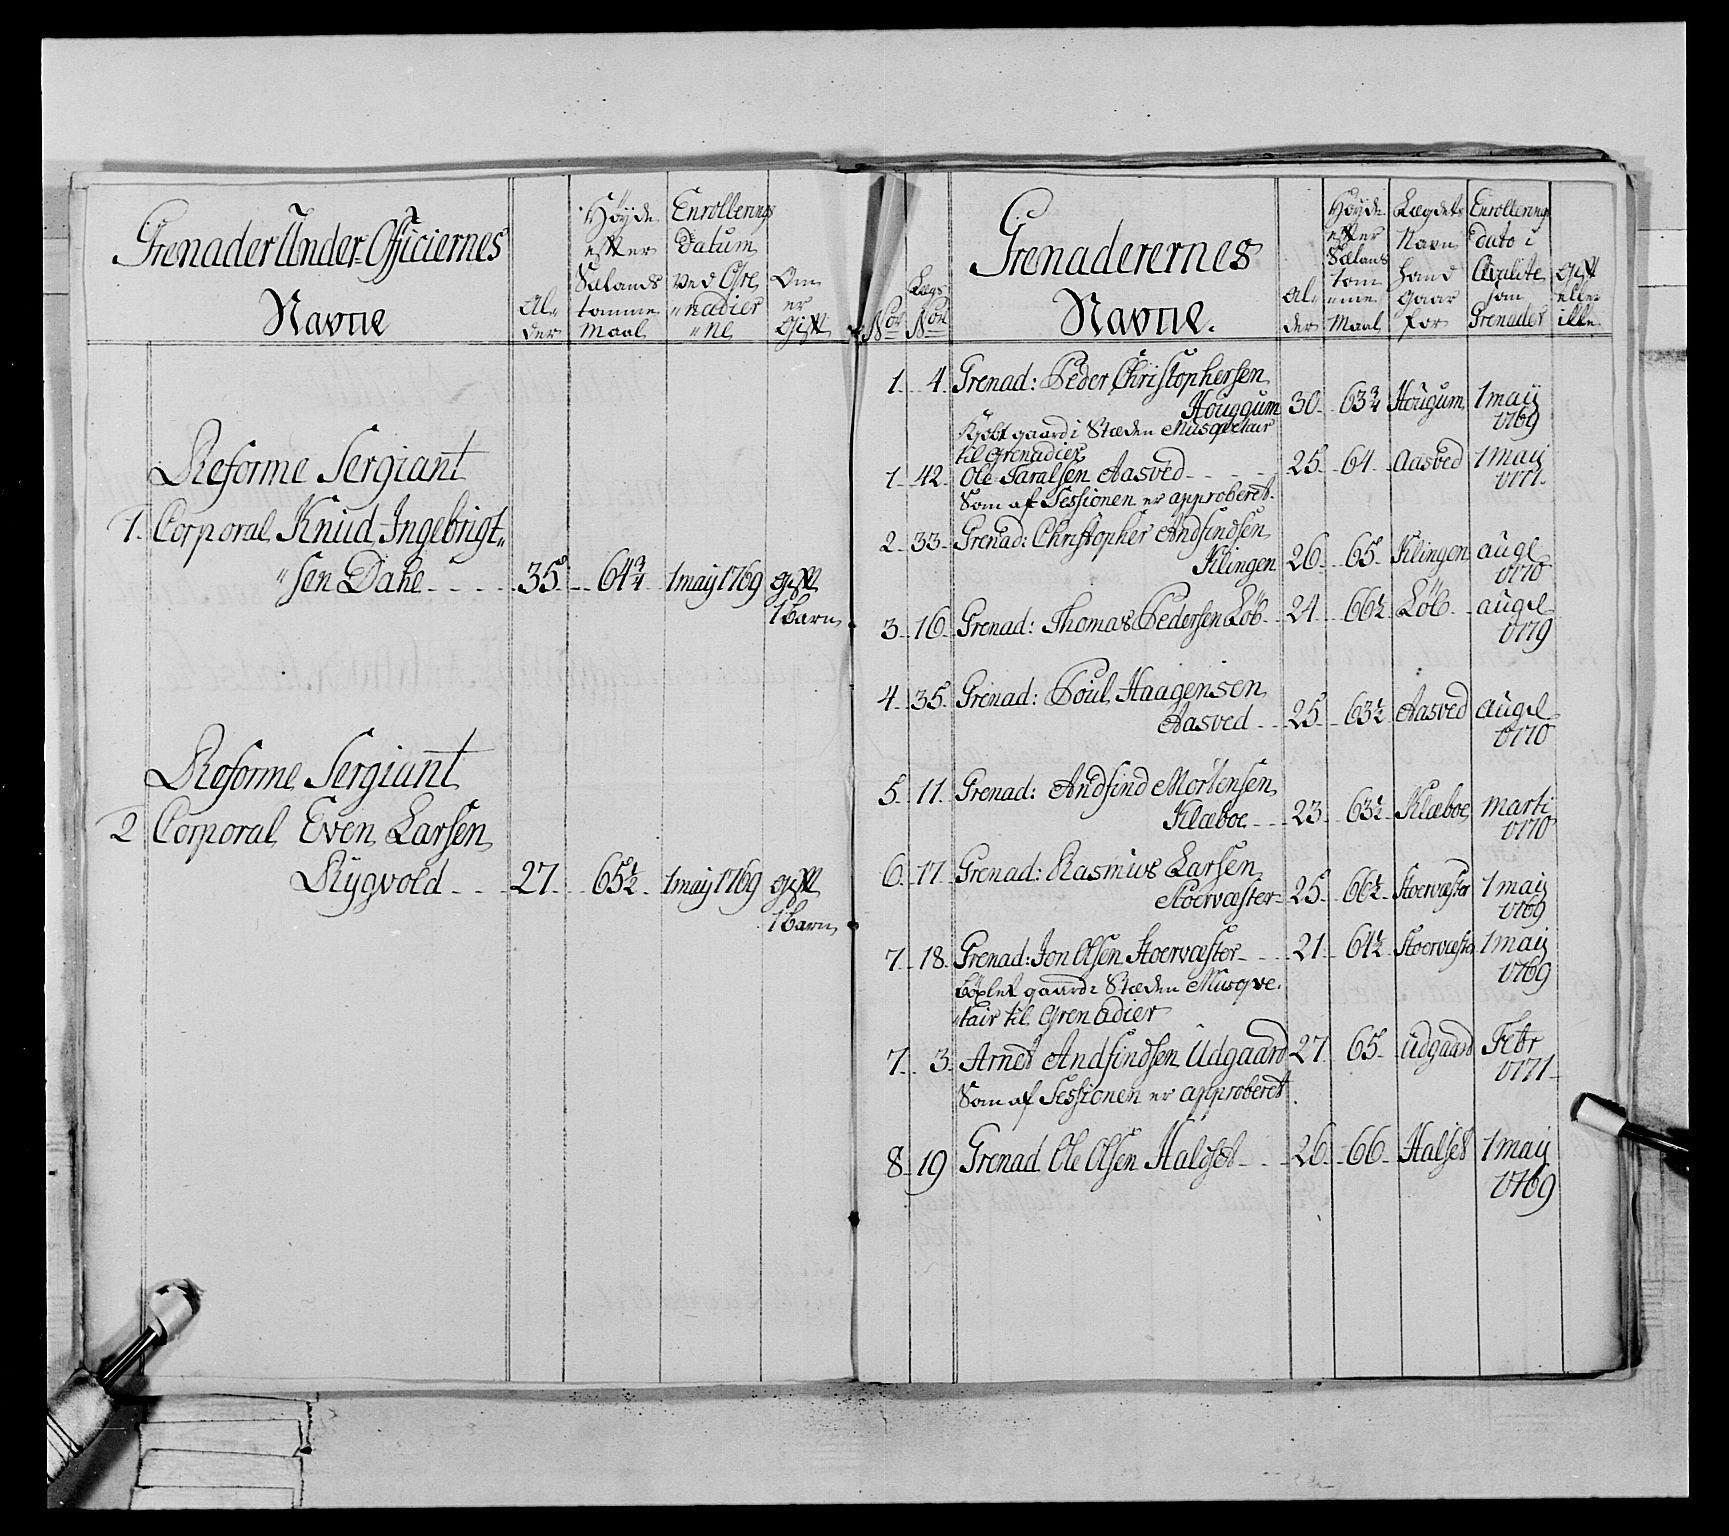 Grenader Under Officiernes
Navne
Al-
der
Høyde
efter
Sælands
tomme
Maal
Enrollerings
Datum
ved Gre
"nadier
"ne
Om
er
Gift
Reforme Sergiant
1. Corporal Knud Ingebrigt„
"sen Dahe - - - - 35 - - 64¾ - 1 may 1769 gift
1 barn
Reforme Sergiant
2 Corporal Even Larsen
Rygvold - - - 27 - - 65½ - 1 may 1769 gift
1 barn
No
Lægs
No
Grenaderernes
Navne.
Al-
der
Høyde
efter
Sælands
tom
mme
Maal
Lægdets
Navn
hand
gaar
for
Enrollerings
dato i
Qvalite
som
Grenader
Gift
eller
ikke
1 - 4 Grenad: Peder Christophersen
Houggum 30 - 63¾ Hougum 1 maij
1769
gaard i Stæden Musqvetair
til Grenadier
1 - 42 Ole Taralsen Aasved - - - 25 - 64 - Aasved 1 maij
1771
Som af Sessionen er approberet.
2 - 33 - Grenad: Christopher Andfindsen
Klingen 26 - 65 - Klingen aug
1770
3 - 16 - Grenad: Thomas Pedersen Løb - 24 - 66½ Løb - aug
1779
4 - 35 - Grenad: Poul Haagensen
Aasved - - 25 - 63½ Aasved aug
1770
5 - 11 - Grenad: Andfind Mortensen
Klæboe - - 23 - 63½ Klæboe marti
1770
6 - 17 - Grenad: Rasmus Larsen
Stoervæster - 25 - 66½ Stoervæster 1 maij
1769
7 - 18 - Grenad: Jon Olsen Stoervæster - - - 21 - 64½ Stoervæster 1 maij
1769
gaard i Stæden Musqve-
"tair til Grenadier
7 - 3 - Arnet Andfindsen Udgaard 27 - 65 - Udgaard Febr
1771
Som af Sessionen er approberet.
8 - 19 Grenad Ole Olsen Haldset - - - 26 - 66 - Halset 1 maij
1769